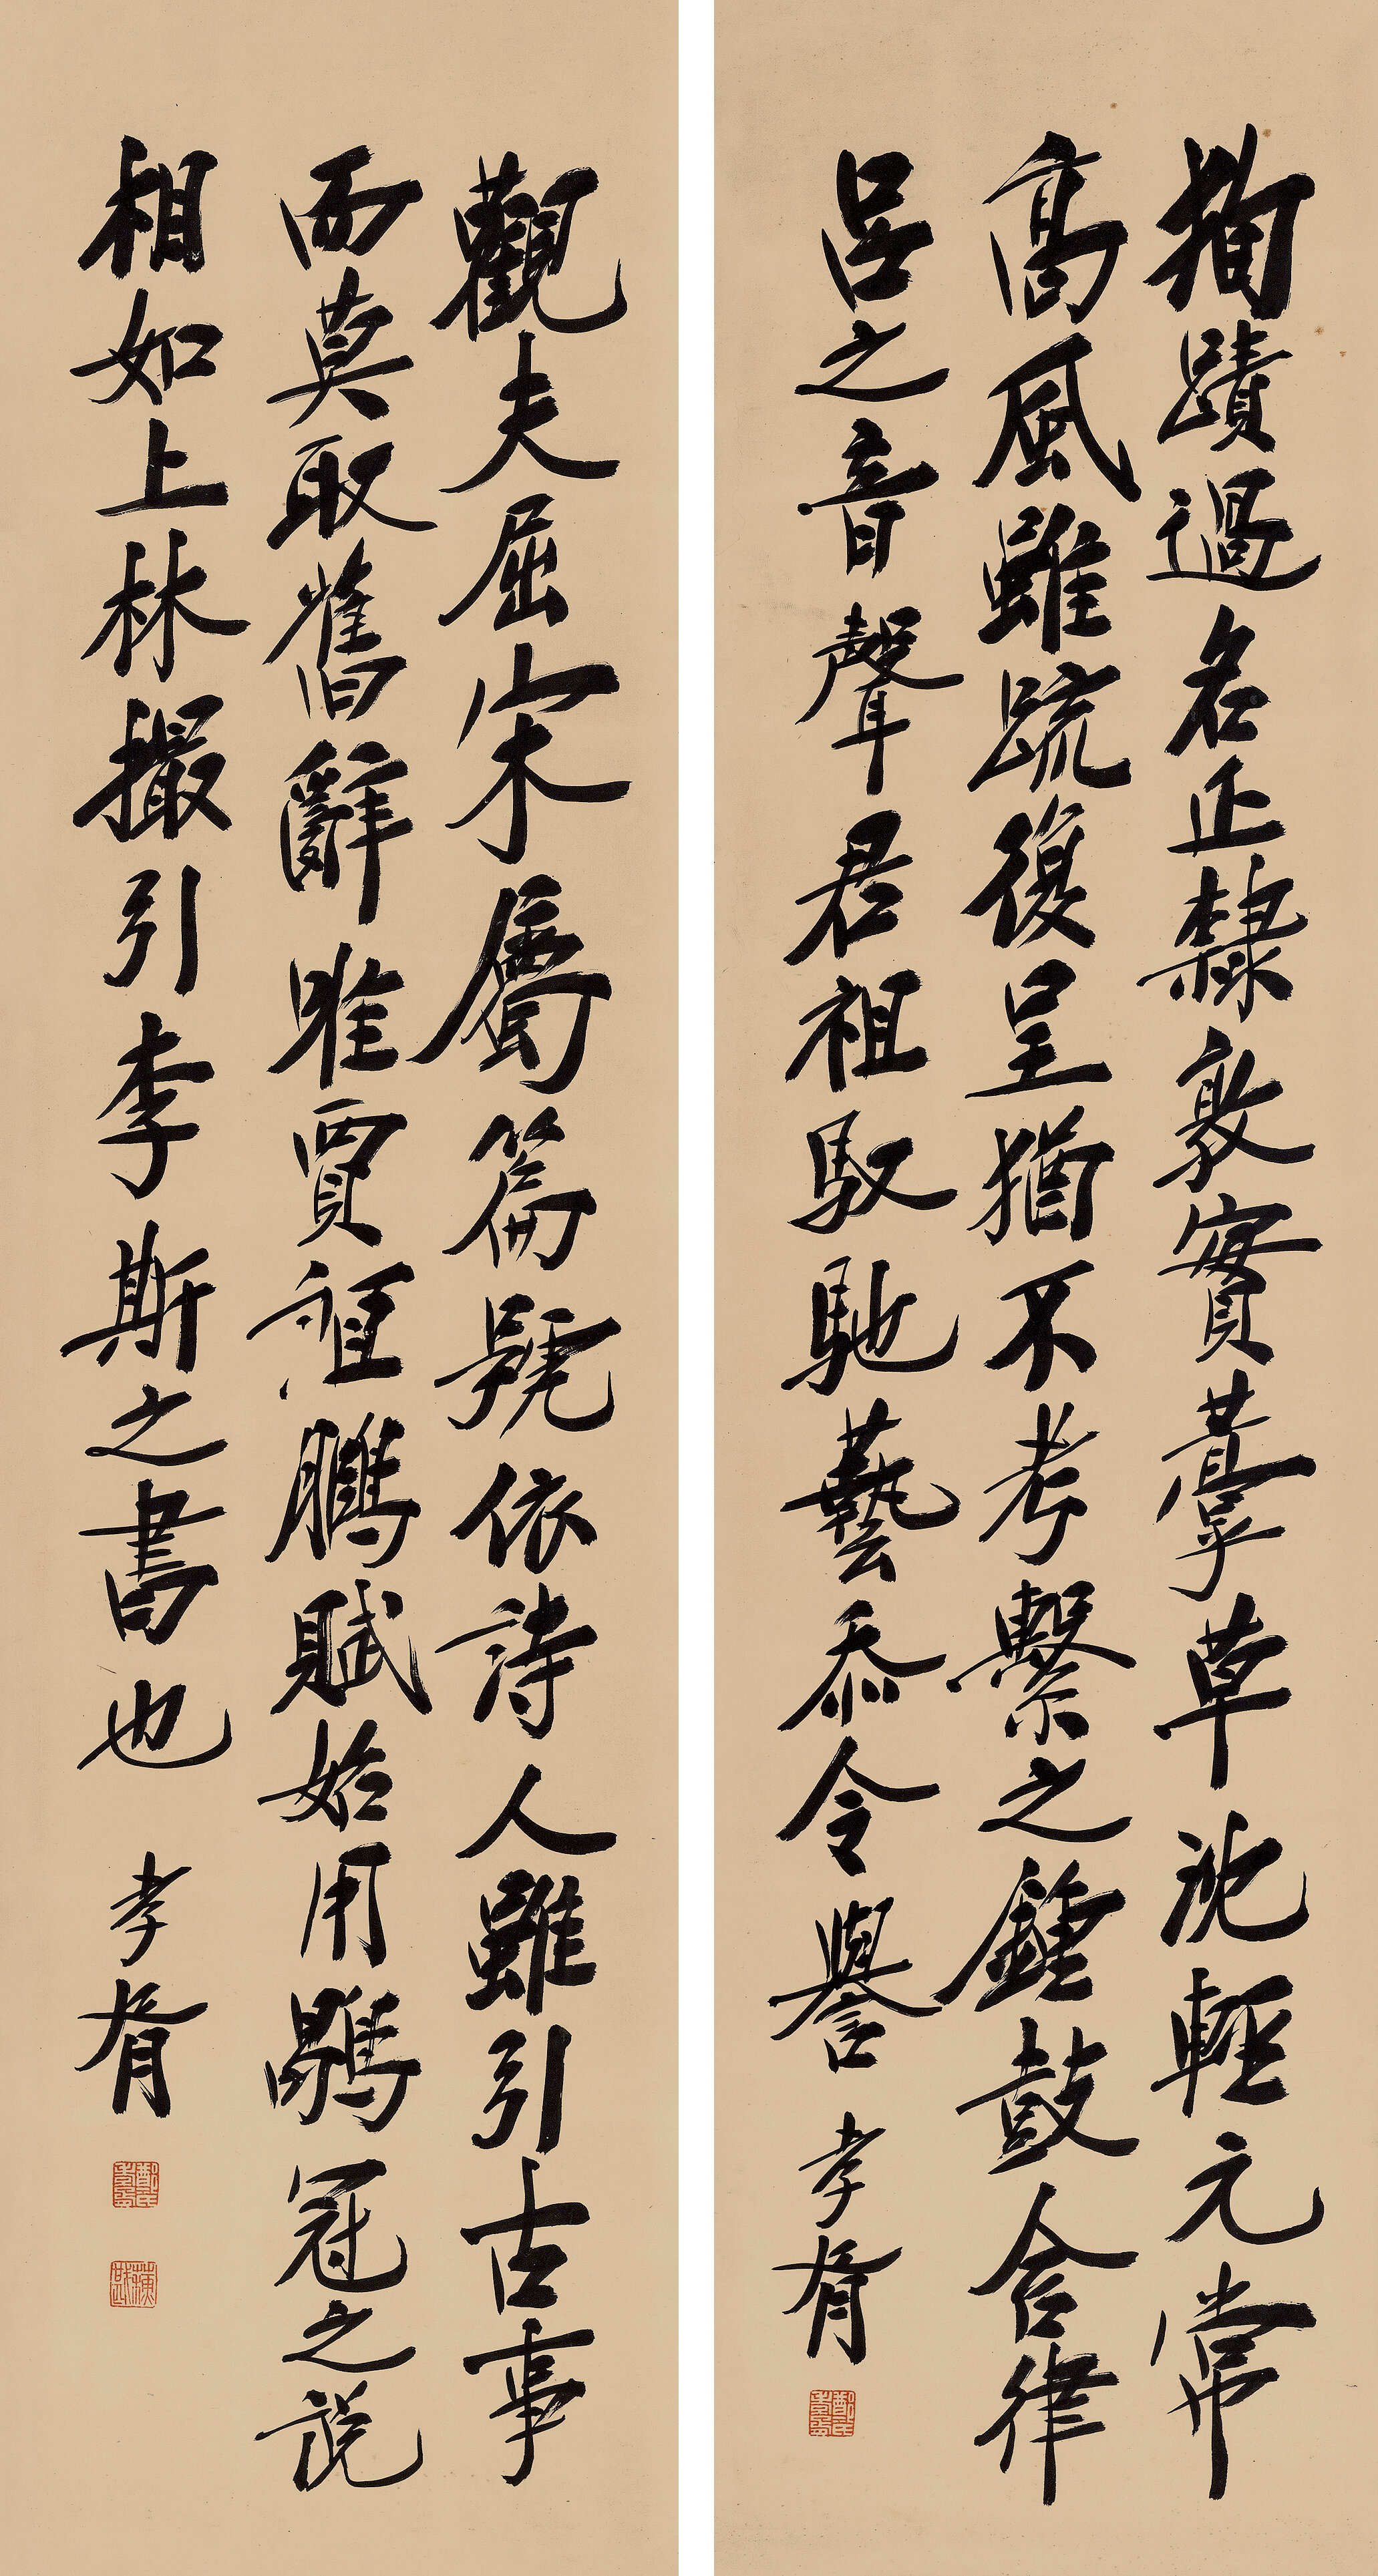 狥蹟過名正隸敦實藁草沈輕元常
高風雖疏復呈猶不考繫之鐘鼓合律
呂之音聲君祖馭馳藝忝令譽 孝胥
觀夫屈宋屬篇號依詩人雖引古事
而莫取舊辭唯賈誼鵩賦始用鶡冠之說
相如上林撮引李斯之書也 孝胥
蘇戡